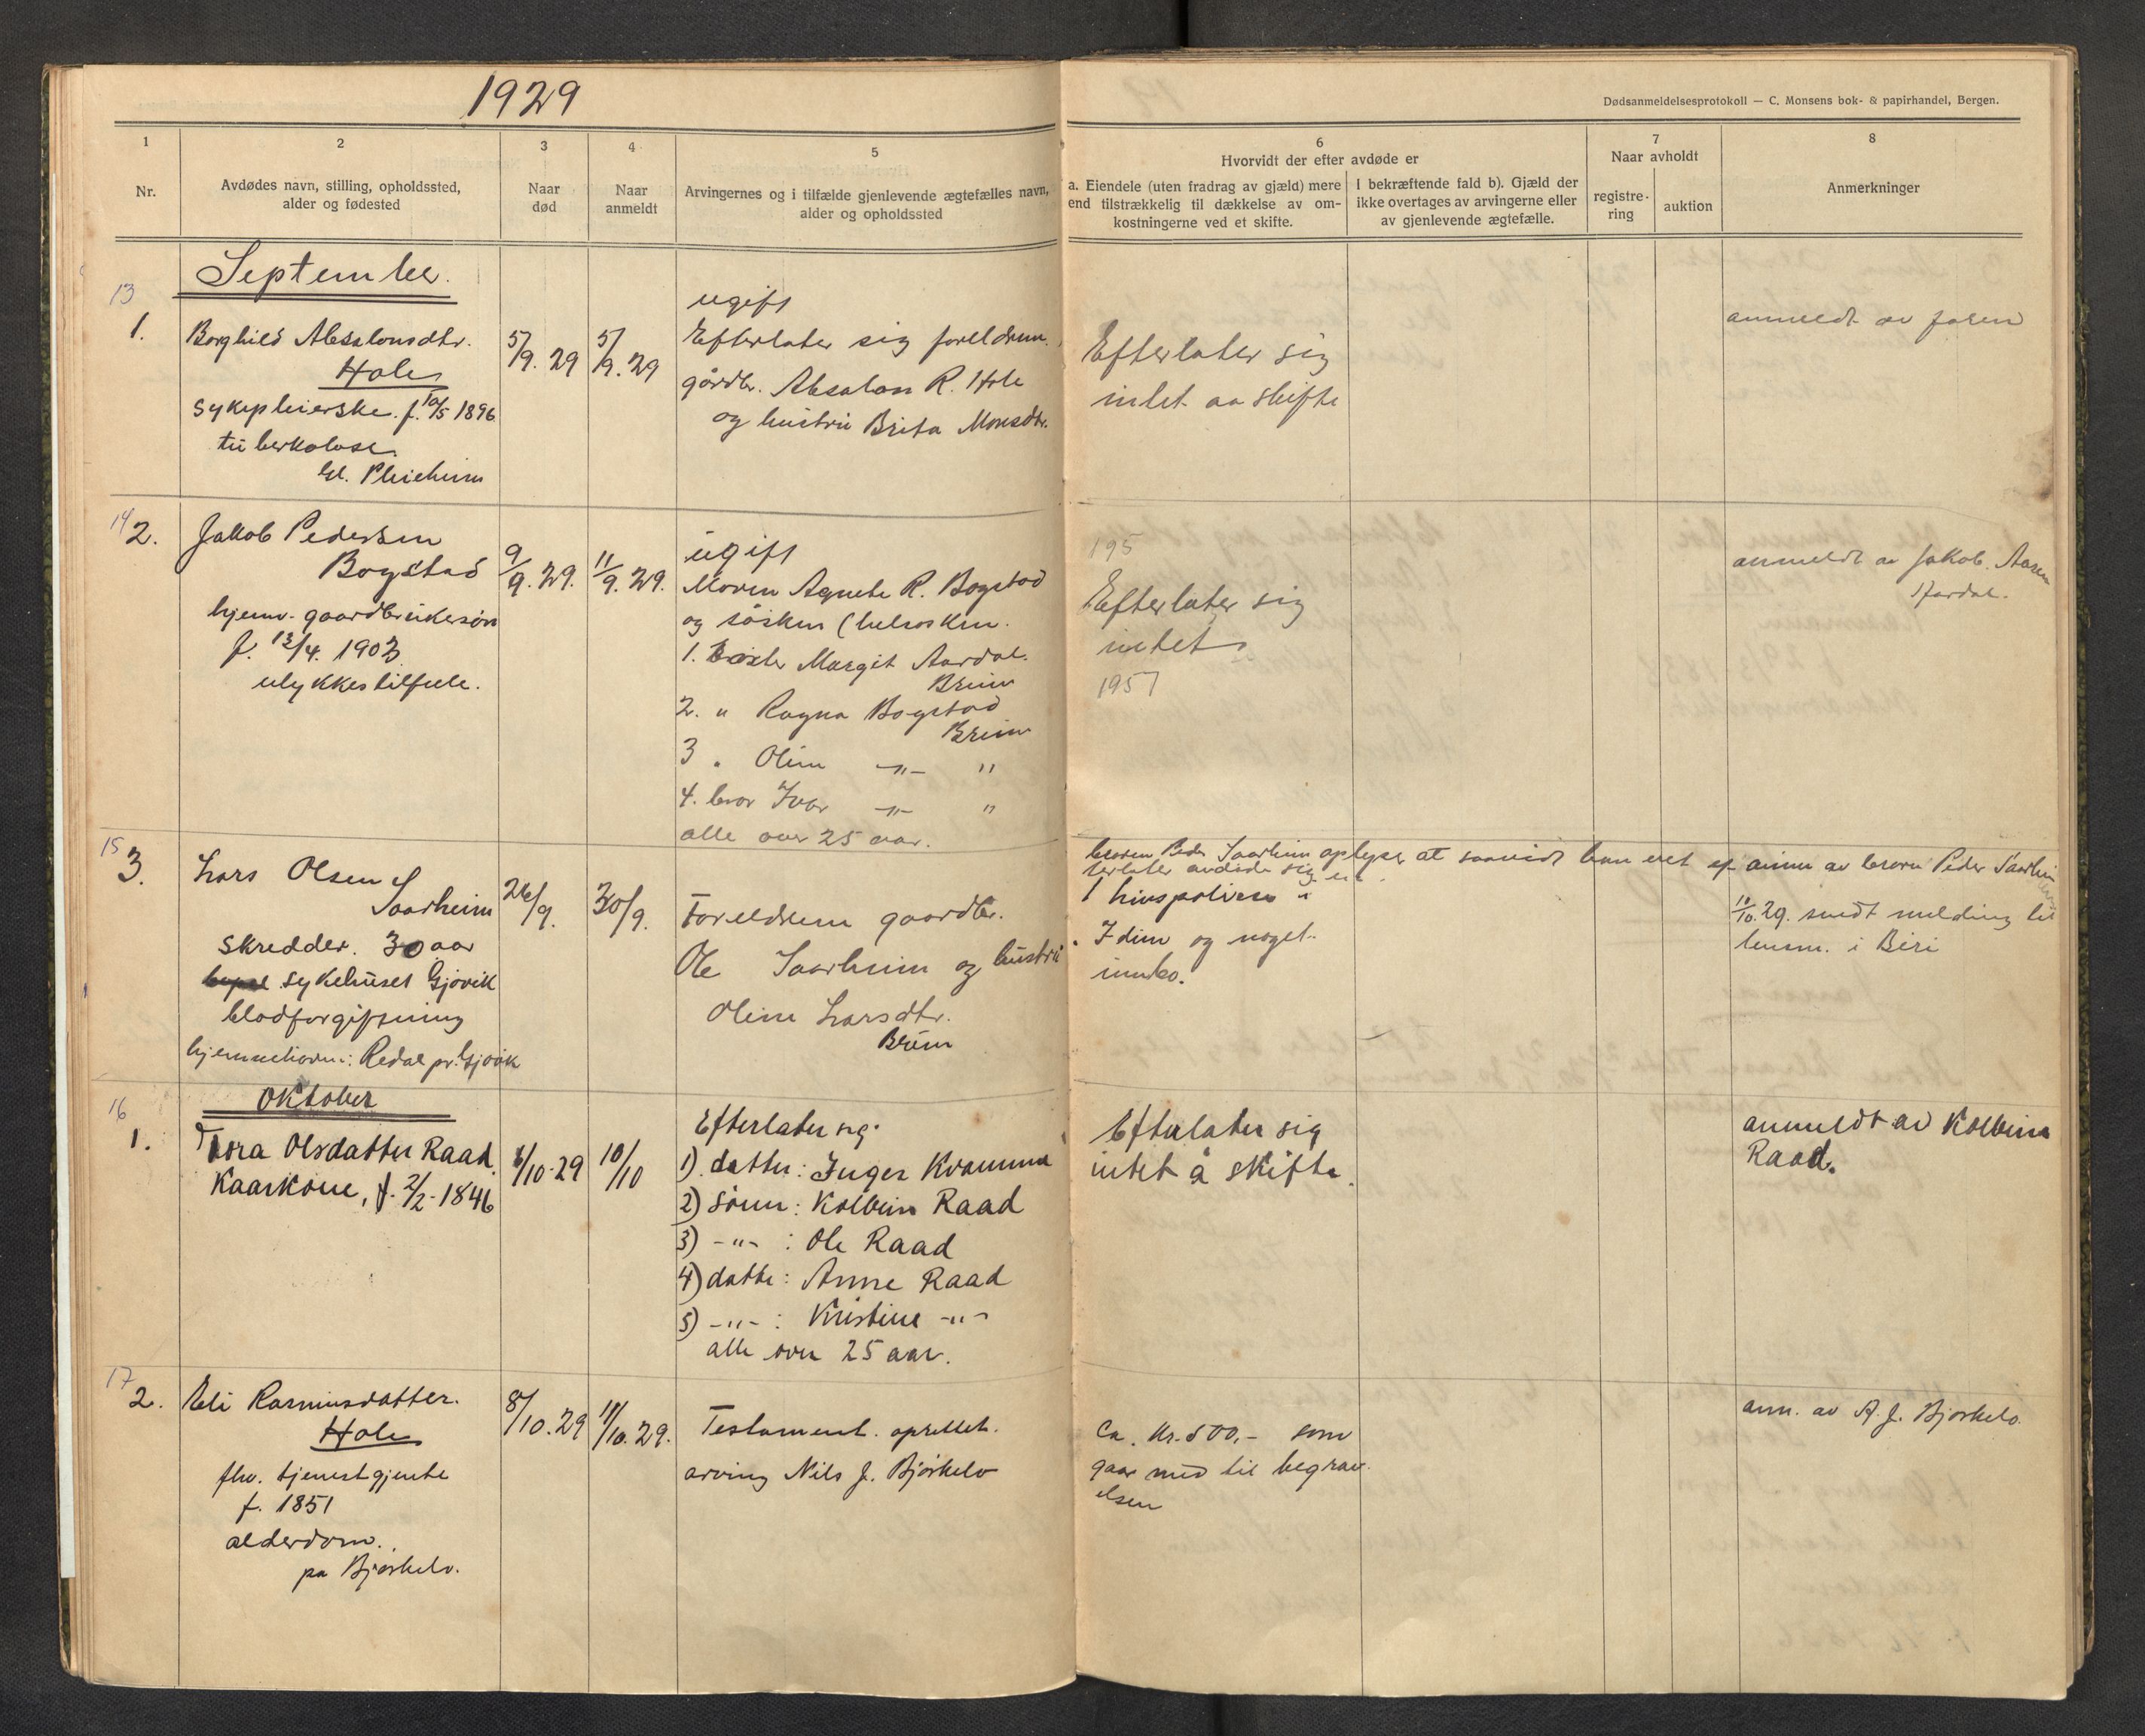 1929
Dødsanmeldelsesprotokoll — C. Monsens bok- & papirhandel, Bergen.
1
2
3
4
5
6
7
8
Nr.
Avdødes navn, stilling, opholdssted,
alder og fødested
Naar
død
Naar
anmeldt
Arvingernes og i tilfælde gjenlevende ægtefælles navn,
alder og opholdssted
Hvorvidt der efter avdøde er
a. Eiendele (uten fradrag av gjæld) mere
end tilstrækkelig til dækkelse av om-
kostningerne ved et skifte.
I bekræftende fald b). Gjæld der
ikke overtages av arvingerne eller
av gjenlevende ægtefælle.
Naar avholdt
registre-
ring
auktion
Anmerkninger
September.
13
1.
Borghild Absalonsdtr.
Hole
sykepleierske. f. 10/5 1896
tuberkolose
Gl. Pleieheim
5/9. 29
5/9. 29
ugift
Efterlater sig foreldrene.
gårdbr. Absalon R. Hole
og hustru Brita Monsdtr.
Efterlater sig
intet aa skifte
anmeldt av faren
14
2.
Jakob Pedersen
Bogstad
hjemv. gaardbrukersøn
f. 13/4. 1903
ulykkestilfelle.
9/9. 29.
11/9. 29.
ugift
Moren Agnete R. Bogstad
og søsken (helsøsken.
1. søster Margit Aardal.
Breim
2. " Ragna Bogstad
Breim
3 " Oline -"- "
4. bror Ivar -"- "
alle over 25 aar.
195
Efterlater sig
intet
1957
anmeldt av Jakob. Aasen
15
3.
Lars Olsen
Saarheim
skredder. 30 aar
sykehuset Gjøvik
blodforgiftning
Redal pr. Gjøvik
26/9.
30/9.
Foreldrene gaardbr.
Ole Saarheim og hustru
Oline Larsdtr.
Breim
broren Peder Saarheim oplyser at saavidt han vet ef-
terlater avdøde sig
1 livspolise
og noget
innbo.
anm. av broren Peder Saarheim
10/10. 29. sendt melding til
lensm. i Biri
Oktober
16
1.
Tora Olsdatter Raad.
Kaarkone, f. 2/2-1846
6/10-29
10/10
Efterlater sig:
1). datter: Inger Kvamme
2) sønn: Kolbein Raad
3) -"- : Ole Raad
4) datter: Anne Raad
5) -"- : Kristine -"-
alle over 25 aar.
Efterlater sig
intet å skifte.
anmeldt av Kolbein
Raad.
17
2.
Eli Rasmusdatter.
Hole
fhv. tjenestgjente
f. 1851
alderdom.
pa Bjørkelo.
8/10. 29
11/10. 29.
Testament. oprettet.
arving Nils J. Bjørkelo
Ca. Kr. 500,- som
gaar med til begrav-
elsen
anm. av A. J. Bjørkelo.